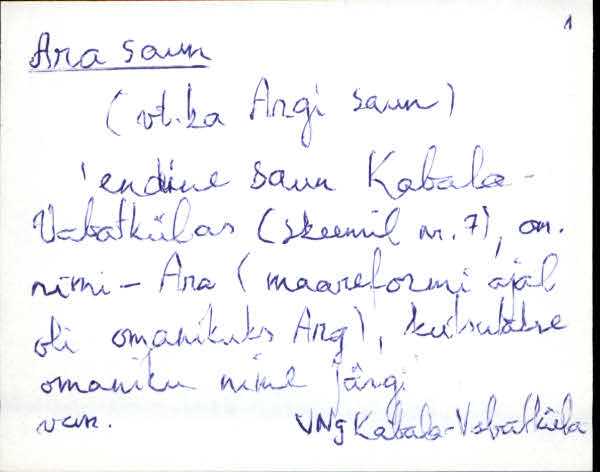 1
Ara saun
(vt. ka Argi saun)
'endine saun Kabala-
Vabatkülas (skeemil nr. 7)', om.
nimi – Ara (maareformi ajal
oli omanikuks Arg), kutsutakse
omaniku nime järgi
van. VNg Kabala-Vabatküla